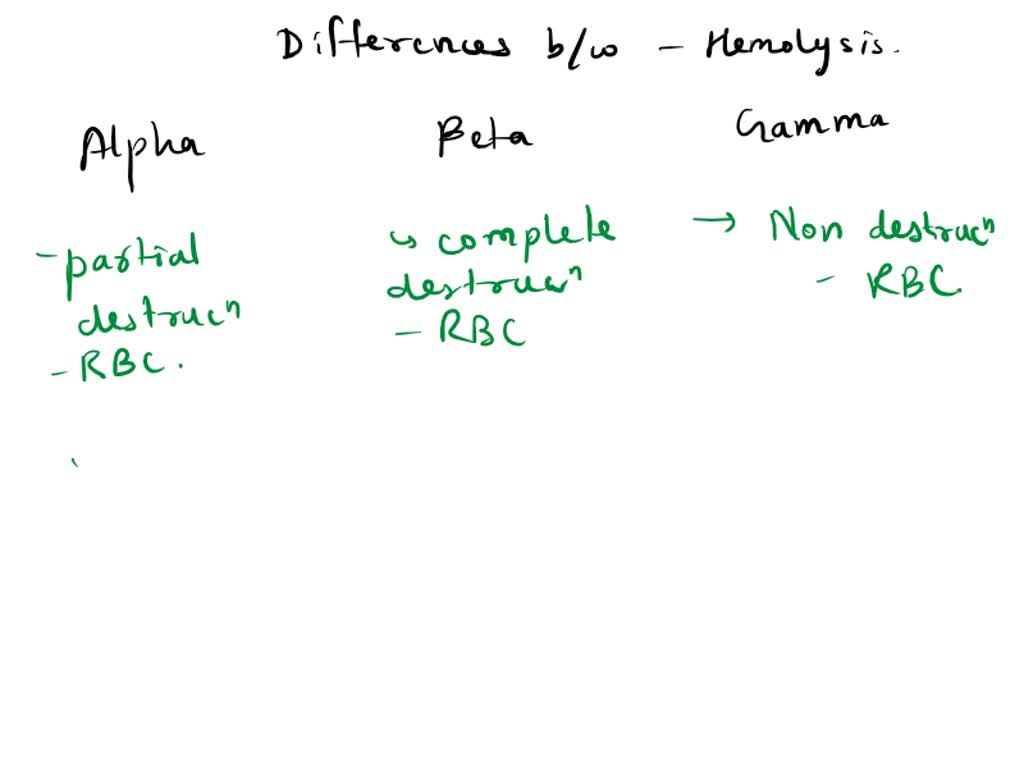 Differences b/w – Hemolysis.
Alpha Beta Gamma
- partial
destrucⁿ
- RBC.
↳ complete
destrucⁿ
- RBC
→ Non destrucⁿ
- RBC